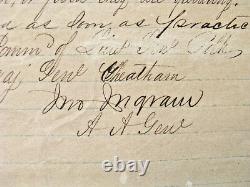 they are
as soon as practic
Comm'd of Lieut Gen'l Polk
Maj Genl Cheatham
Jno Ingram
A A Genl